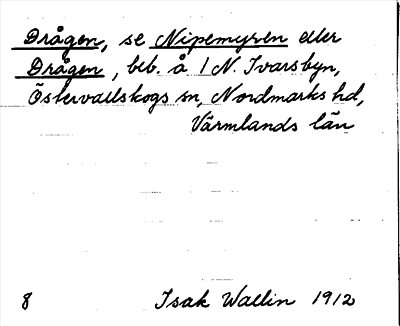 Drågen, se Nipemyren eller
Drågen, beb. å 1 N. Ivarsbyn,
Östervallskogs sn, Nordmarks hd,
Värmlands län
8 Isak Wallin 1912